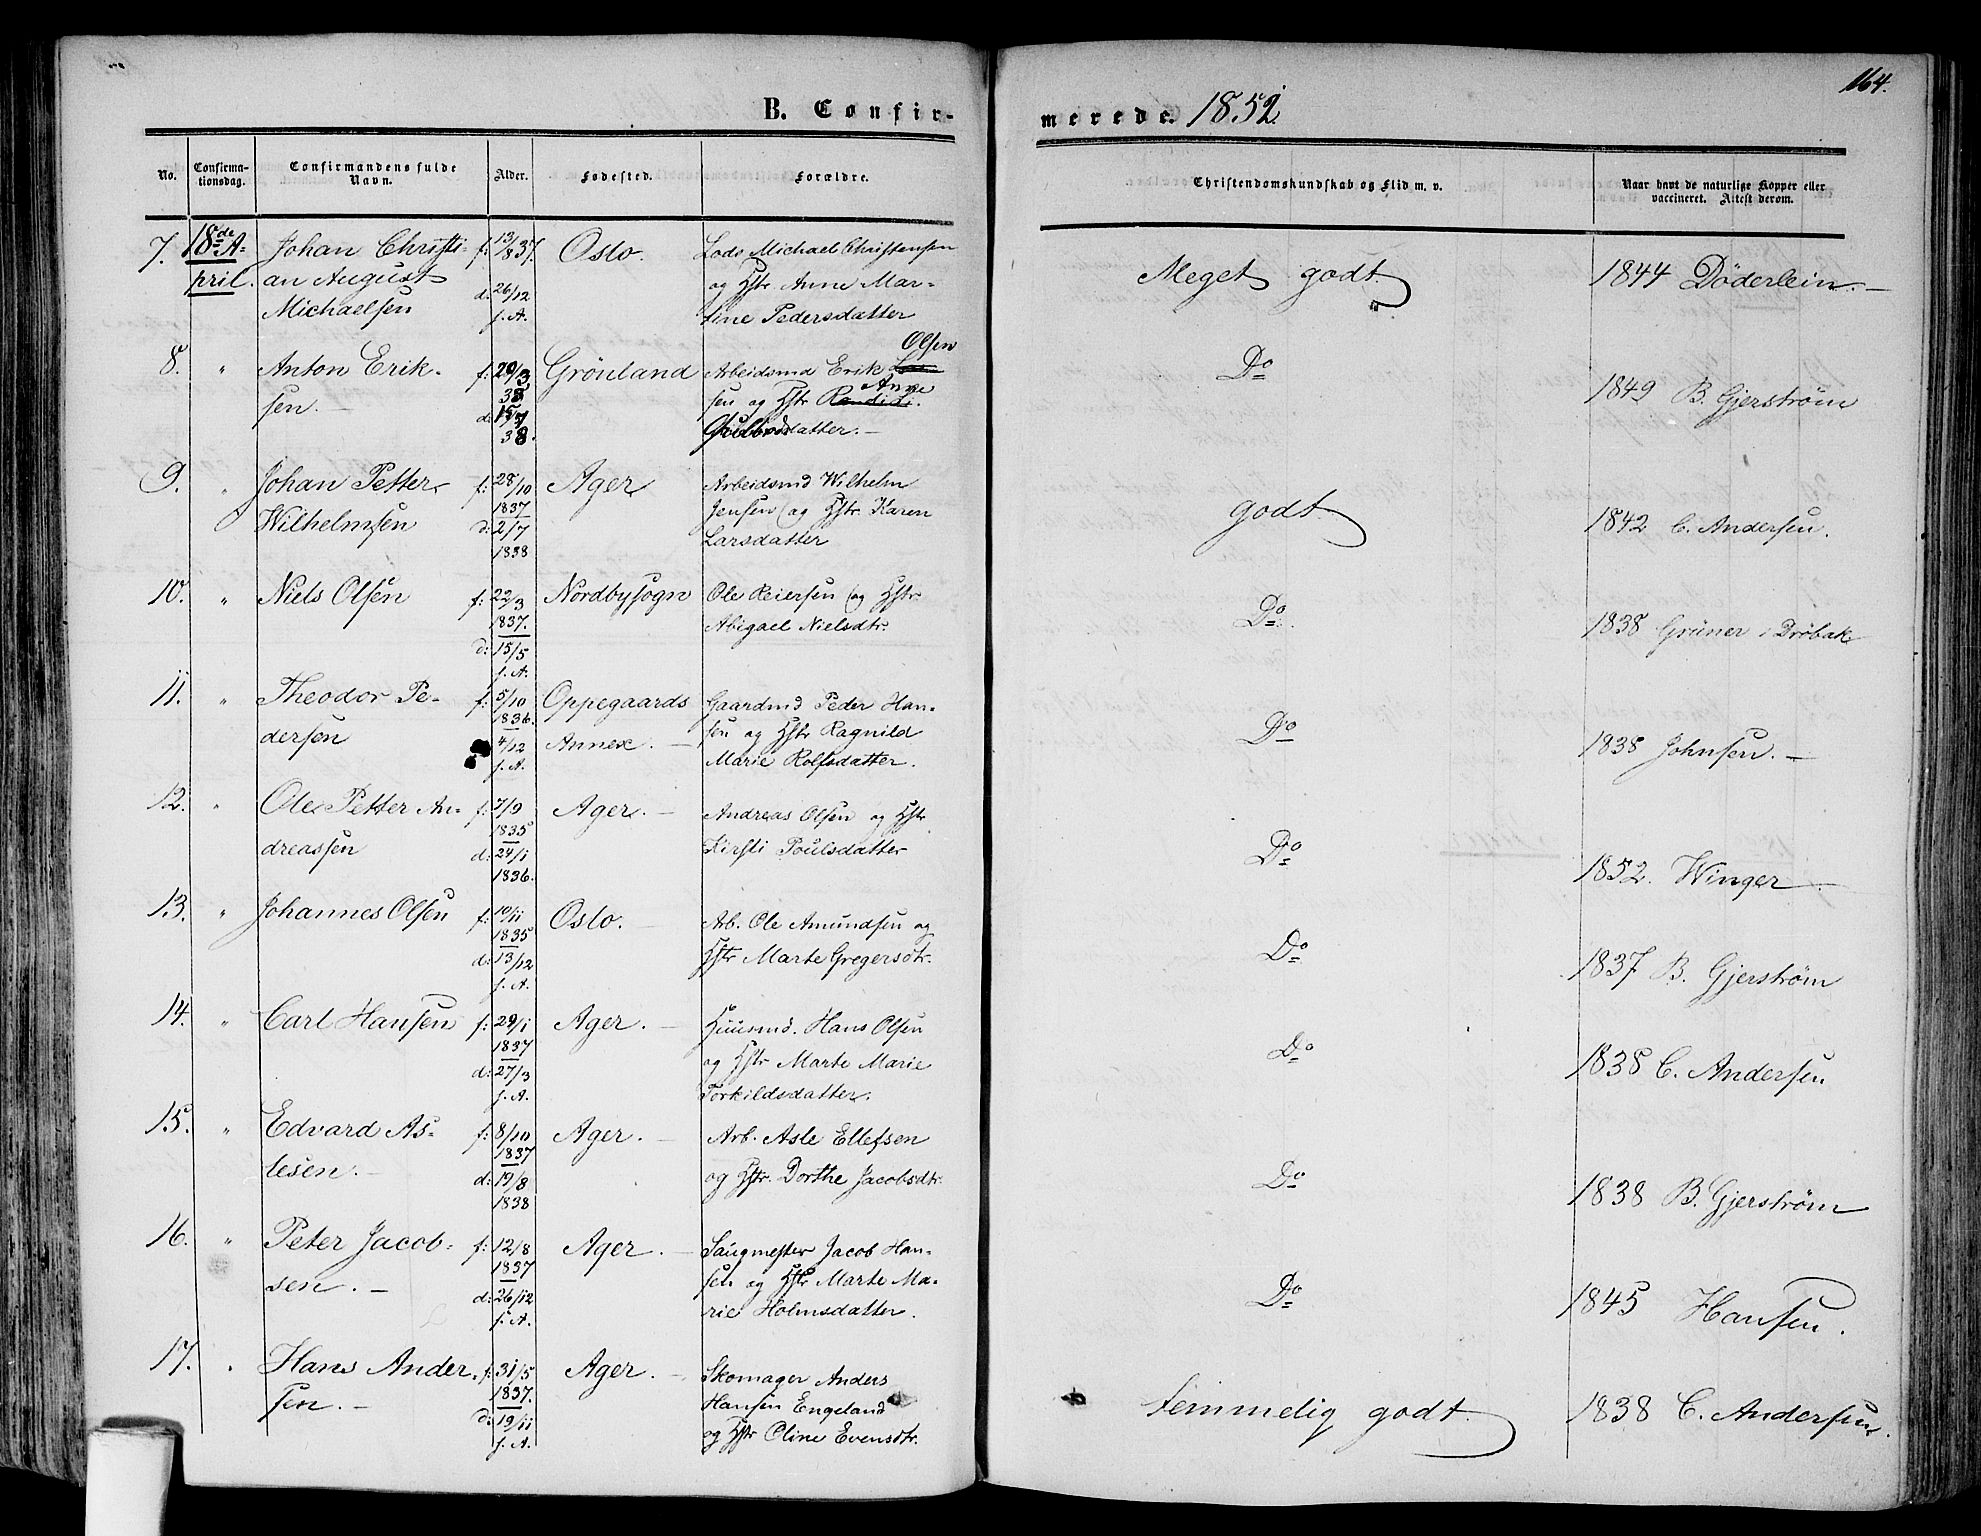 164.
B. Confir-
merede. 1852.
No.
Confirma-
tionsdag.
Confirmandens fulde
Navn.
Alder.
Fødested.
Forældre.
Christendomskundskab og Flid m. v.
Naar havt de naturlige Kopper eller
vaccineret. Attest derom.
7. 18de A- Johan Christi- f: 13/8 37. Oslo. Lods Michael Christensen
pril. an August d: 26/12 og Hstr. Anne Mar-
Michaelsen s. A. tine Pedersdatter
Meget godt. 1844 Döderlein. —
8. " Anton Erik- f: 20/3 Grönland Arbeidsmd Erik Olsen
sen. — 38 d: 15/7 38. og Hstr Anne
Gulbrdsdatter. —
Do 1849 B. Gjerström
9. " Johan Petter f: 28/10 Ager Arbeidsmd Wilhelm
Wilhelmsen 1837 Jensen og Hstr. Karen
d: 2/7 1838 Larsdatter
godt. 1842 C. Andersen.
10. " Niels Olsen f: 22/3 Nordbysogn Ole Reiersen og Hstr.
1837. Abigael Nielsdtr.
d: 15/5
s. A.
Do 1838 Grüner i Dröbak
11. " Theodor Pe- f: 5/10 Oppegaards Gaardmd Peder Han-
dersen 1836. Annex. — sen og Hstr Ragnild
4/12 Marie Rolfsdatter.
s. A.
Do 1838 Johnsen. —
12. " Ole Petter An- f: 7/9 Ager. — Andreas Olsen og Hstr
dreassen 1835 Kirsti Poulsdatter
d: 24/1
1836.
Do 1852. Winger —
13. " Johannes Olsen f: 10/11 Oslo. — Arb. Ole Amundsen og
1835 Hstr Marte Gregersdtr.
d: 13/12
s. A.
Do 1837 B. Gjerström
14. " Carl Hansen f: 29/1 Ager. — Huusmd. Hans Olsen
1837 og Hstr Marte Marie
d: 27/3 Torkildsdatter.
s. A.
Do 1838 C. Andersen
15. " Edvard As- f: 8/10 Ager. — Arb. Asle Ellefsen
lesen. — 1837 og Hstr. Dorthe Jacobsdtr.
d: 19/8
1838
Do 1838 B. Gjerström
16. " Peter Jacob- f: 12/8 Ager. — Saugmester Jacob Han-
sen. — 1837 sen og Hstr Marte Ma-
d: 26/12 rie Holmsdatter.
s. A.
Do 1845 Hansen.
17. " Hans Ander f: 31/5 Ager. — Skomager Anders
sen. — 1837. Hansen Engeland
d: 19/11 og Hstr Oline Evensdtr.
s. A.
Temmelig godt. 1838 C. Andersen.